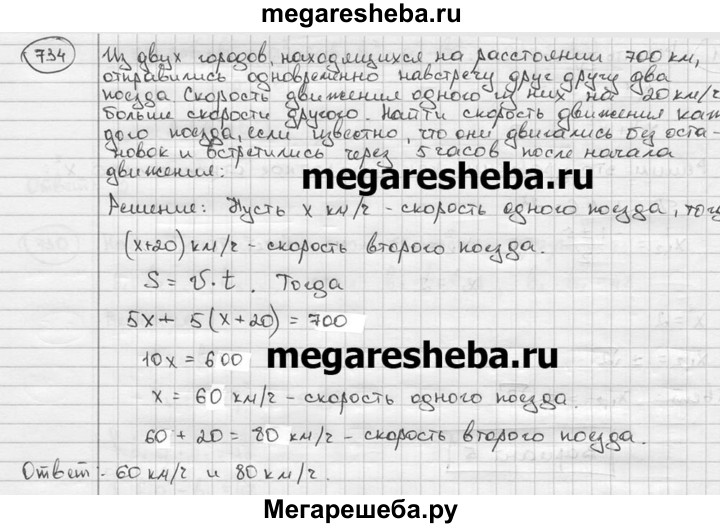 megaresheba.ru
734 Из двух городов, находящихся на расстоянии 700 км,
отправились одновременно навстречу друг другу два
поезда. Скорость движения одного из них на 20 км/г
больше скорости другого. Найти скорость движения каж
дого поезда, если известно, что они двигались без оста-
новок и встретились через 5 часов после начала
движения:
megaresheba.ru
Решение: Пусть x км/г - скорость одного поезда, тог
(x+20) км/г - скорость второго поезда.
S = v·t. Тогда
5x + 5(x+20) = 700
10x = 600
megaresheba.ru
x = 60 км/г - скорость одного поезда.
60 + 20 = 80 км/г - скорость второго поезда.
Ответ: 60 км/г и 80 км/г.
Мегарешеба.ру